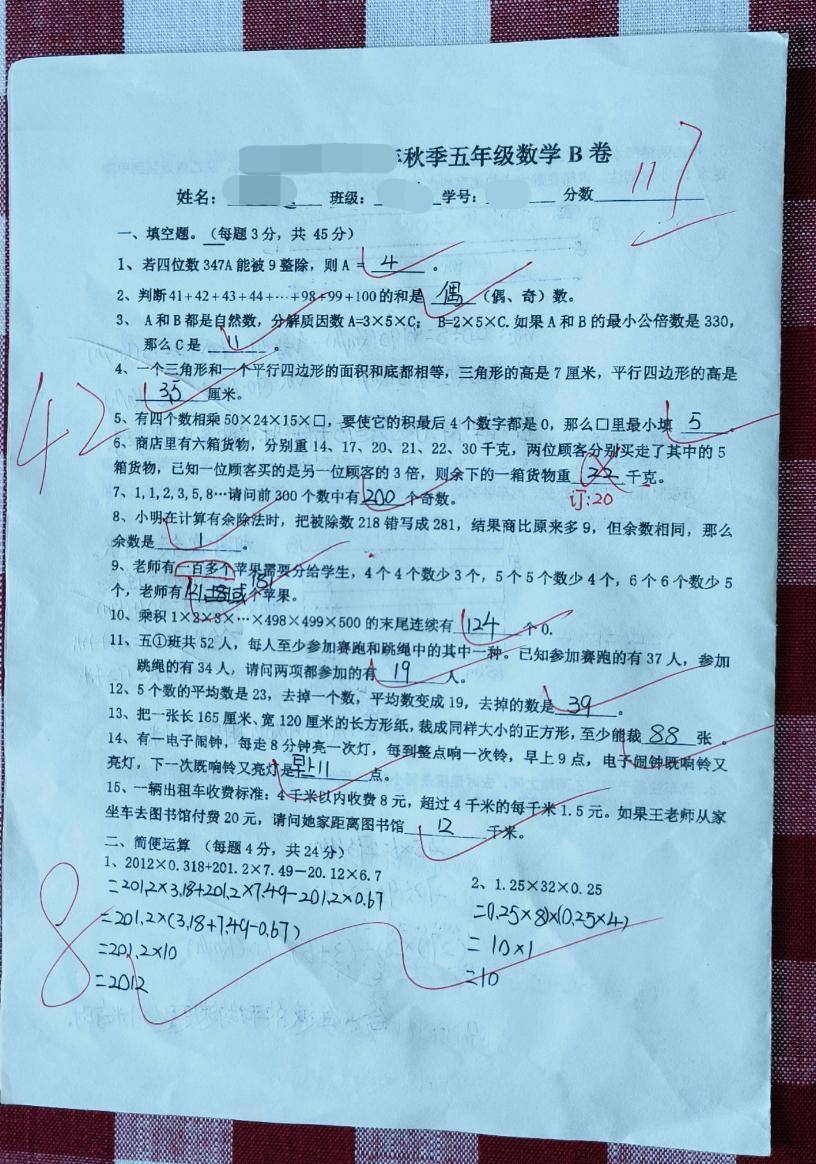 秋季五年级数学 B 卷
姓名： 班级： 学号： 分数 117
一、填空题。（每题 3 分，共 45 分）
1、若四位数 347A 能被 9 整除，则 A = 4 。
2、判断 41+42+43+44+…+98+99+100 的和是 偶 （偶、奇）数。
3、 A 和 B 都是自然数，分解质因数 A=3×5×C； B=2×5×C. 如果 A 和 B 的最小公倍数是 330，
那么 C 是 11 。
42
4、一个三角形和一个平行四边形的面积和底都相等，三角形的高是 7 厘米，平行四边形的高是
3.5 厘米。
5、有四个数相乘 50×24×15×□，要使它的积最后 4 个数字都是 0，那么□里最小填 5 。
6、商店里有六箱货物，分别重 14、17、20、21、22、30 千克，两位顾客分别买走了其中的 5
箱货物，已知一位顾客买的是另一位顾客的 3 倍，则余下的一箱货物重 22 千克。
订:20
7、1,1,2,3,5,8…请问前 300 个数中有 200 个奇数。
8、小明在计算有余除法时，把被除数 218 错写成 281，结果商比原来多 9，但余数相同，那么
余数是 1 。
9、老师有一百多个苹果需要分给学生，4 个 4 个数少 3 个，5 个 5 个数少 4 个，6 个 6 个数少 5
个，老师有 121或 181 个苹果。
10、乘积 1×2×3×…×498×499×500 的末尾连续有 124 个 0.
11、五①班共 52 人，每人至少参加赛跑和跳绳中的其中一种。已知参加赛跑的有 37 人，参加
跳绳的有 34 人，请问两项都参加的有 19 人。
12、5 个数的平均数是 23，去掉一个数，平均数变成 19，去掉的数是 39 。
13、把一张长 165 厘米、宽 120 厘米的长方形纸，裁成同样大小的正方形，至少能裁 88 张 。
14、有一电子闹钟，每走 8 分钟亮一次灯，每到整点响一次铃，早上 9 点，电子闹钟既响铃又
亮灯，下一次既响铃又亮灯是 早上11 点。
15、一辆出租车收费标准：4 千米以内收费 8 元，超过 4 千米的每千米 1.5 元。如果王老师从家
坐车去图书馆付费 20 元，请问她家距离图书馆 12 千米。
二、简便运算 （每题 4 分，共 24 分）
8
1、2012×0.318+201.2×7.49－20.12×6.7
=201.2×3.18+201.2×7.49-201.2×0.67
=201.2×(3.18+7.49-0.67)
=201.2×10
=2012
2、1.25×32×0.25
=(1.25×8)×(0.25×4)
= 10×1
=10